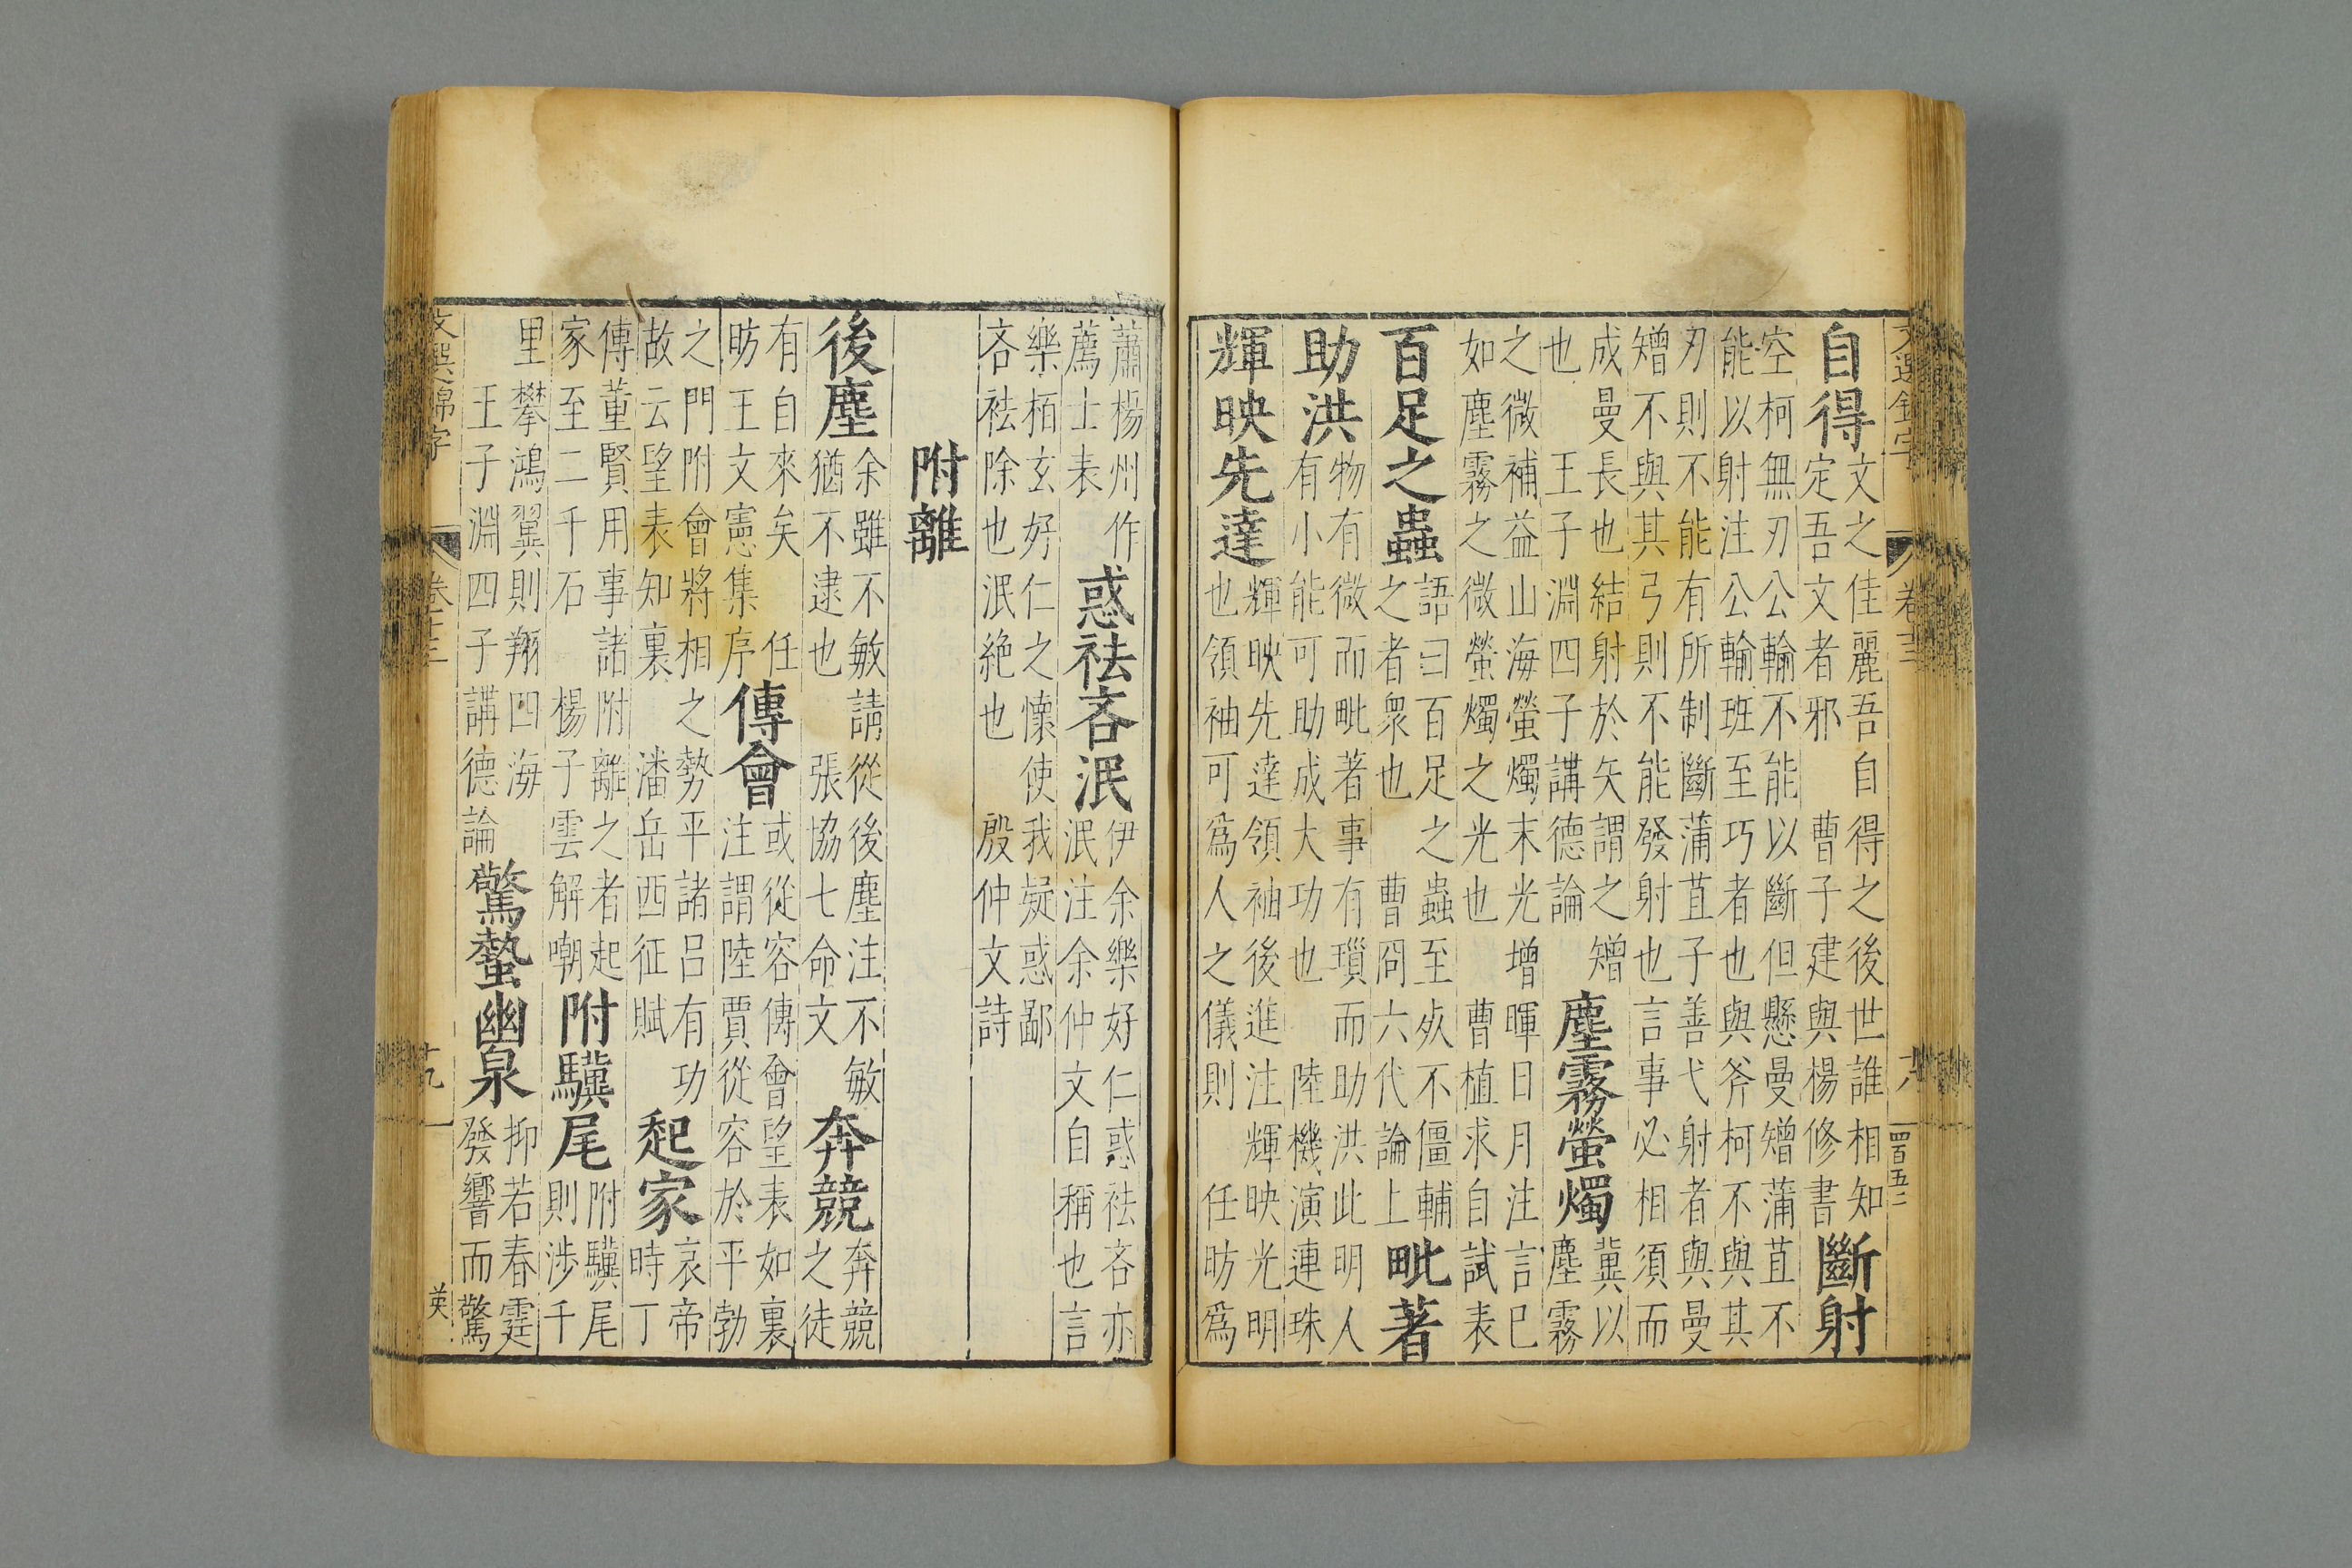 卷十三 十八 四百五二
自得
文之佳麗吾自得之後世誰相知
定吾文者邪 曹子建與楊修書
斷射
空柯無刃公輪不能以斷但懸曼矰蒲苴不
能以射注公輪班至巧者也與斧柯不與其
刃則不能有所制斷蒲苴子善弋射者與曼
矰不與其弓則不能發射也言事必相須而
成曼長也結射於矢謂之矰
也 王子淵四子講德論
塵霧螢燭
冀以
塵霧
之微補益山海螢燭末光增暉日月注言已
如塵霧之微螢燭之光也 曹植求自試表
百足之蟲
語曰百足之蟲至死不僵輔
之者衆也 曹冏六代論上
毗著
助洪
物有微而毗著事有瑣而助洪此明人
有小能可助成大功也 陸機演連珠
輝映先達
輝映先達領袖後進注輝映光明
也領袖可爲人之儀則 任昉爲
蕭楊州作
薦士表
惑袪吝泯
伊余樂好仁惑袪吝亦
泯注余仲文自稱也言
樂栢玄好仁之懷使我疑惑鄙
吝袪除也泯絶也 殷仲文詩
附離
後塵
余雖不敏請從後塵注不敏
猶不逮也 張協七命文
奔競
奔競
之徒
有自來矣 任
昉王文憲集序
傳會
或從容傳會望表如裏
注謂陸賈從容於平勃
之門附會將相之勢平諸呂有功
故云望表知裏 潘岳西征賦
起家
哀帝
時丁
傳董賢用事諸附離之者起
家至二千石 楊子雲解嘲
附驥尾
附驥尾
則涉千
里攀鴻翼則翔四海
王子淵四子講德論
驚蟄幽泉
抑若春霆
發響而驚
文選錦字 卷十三 十九 英